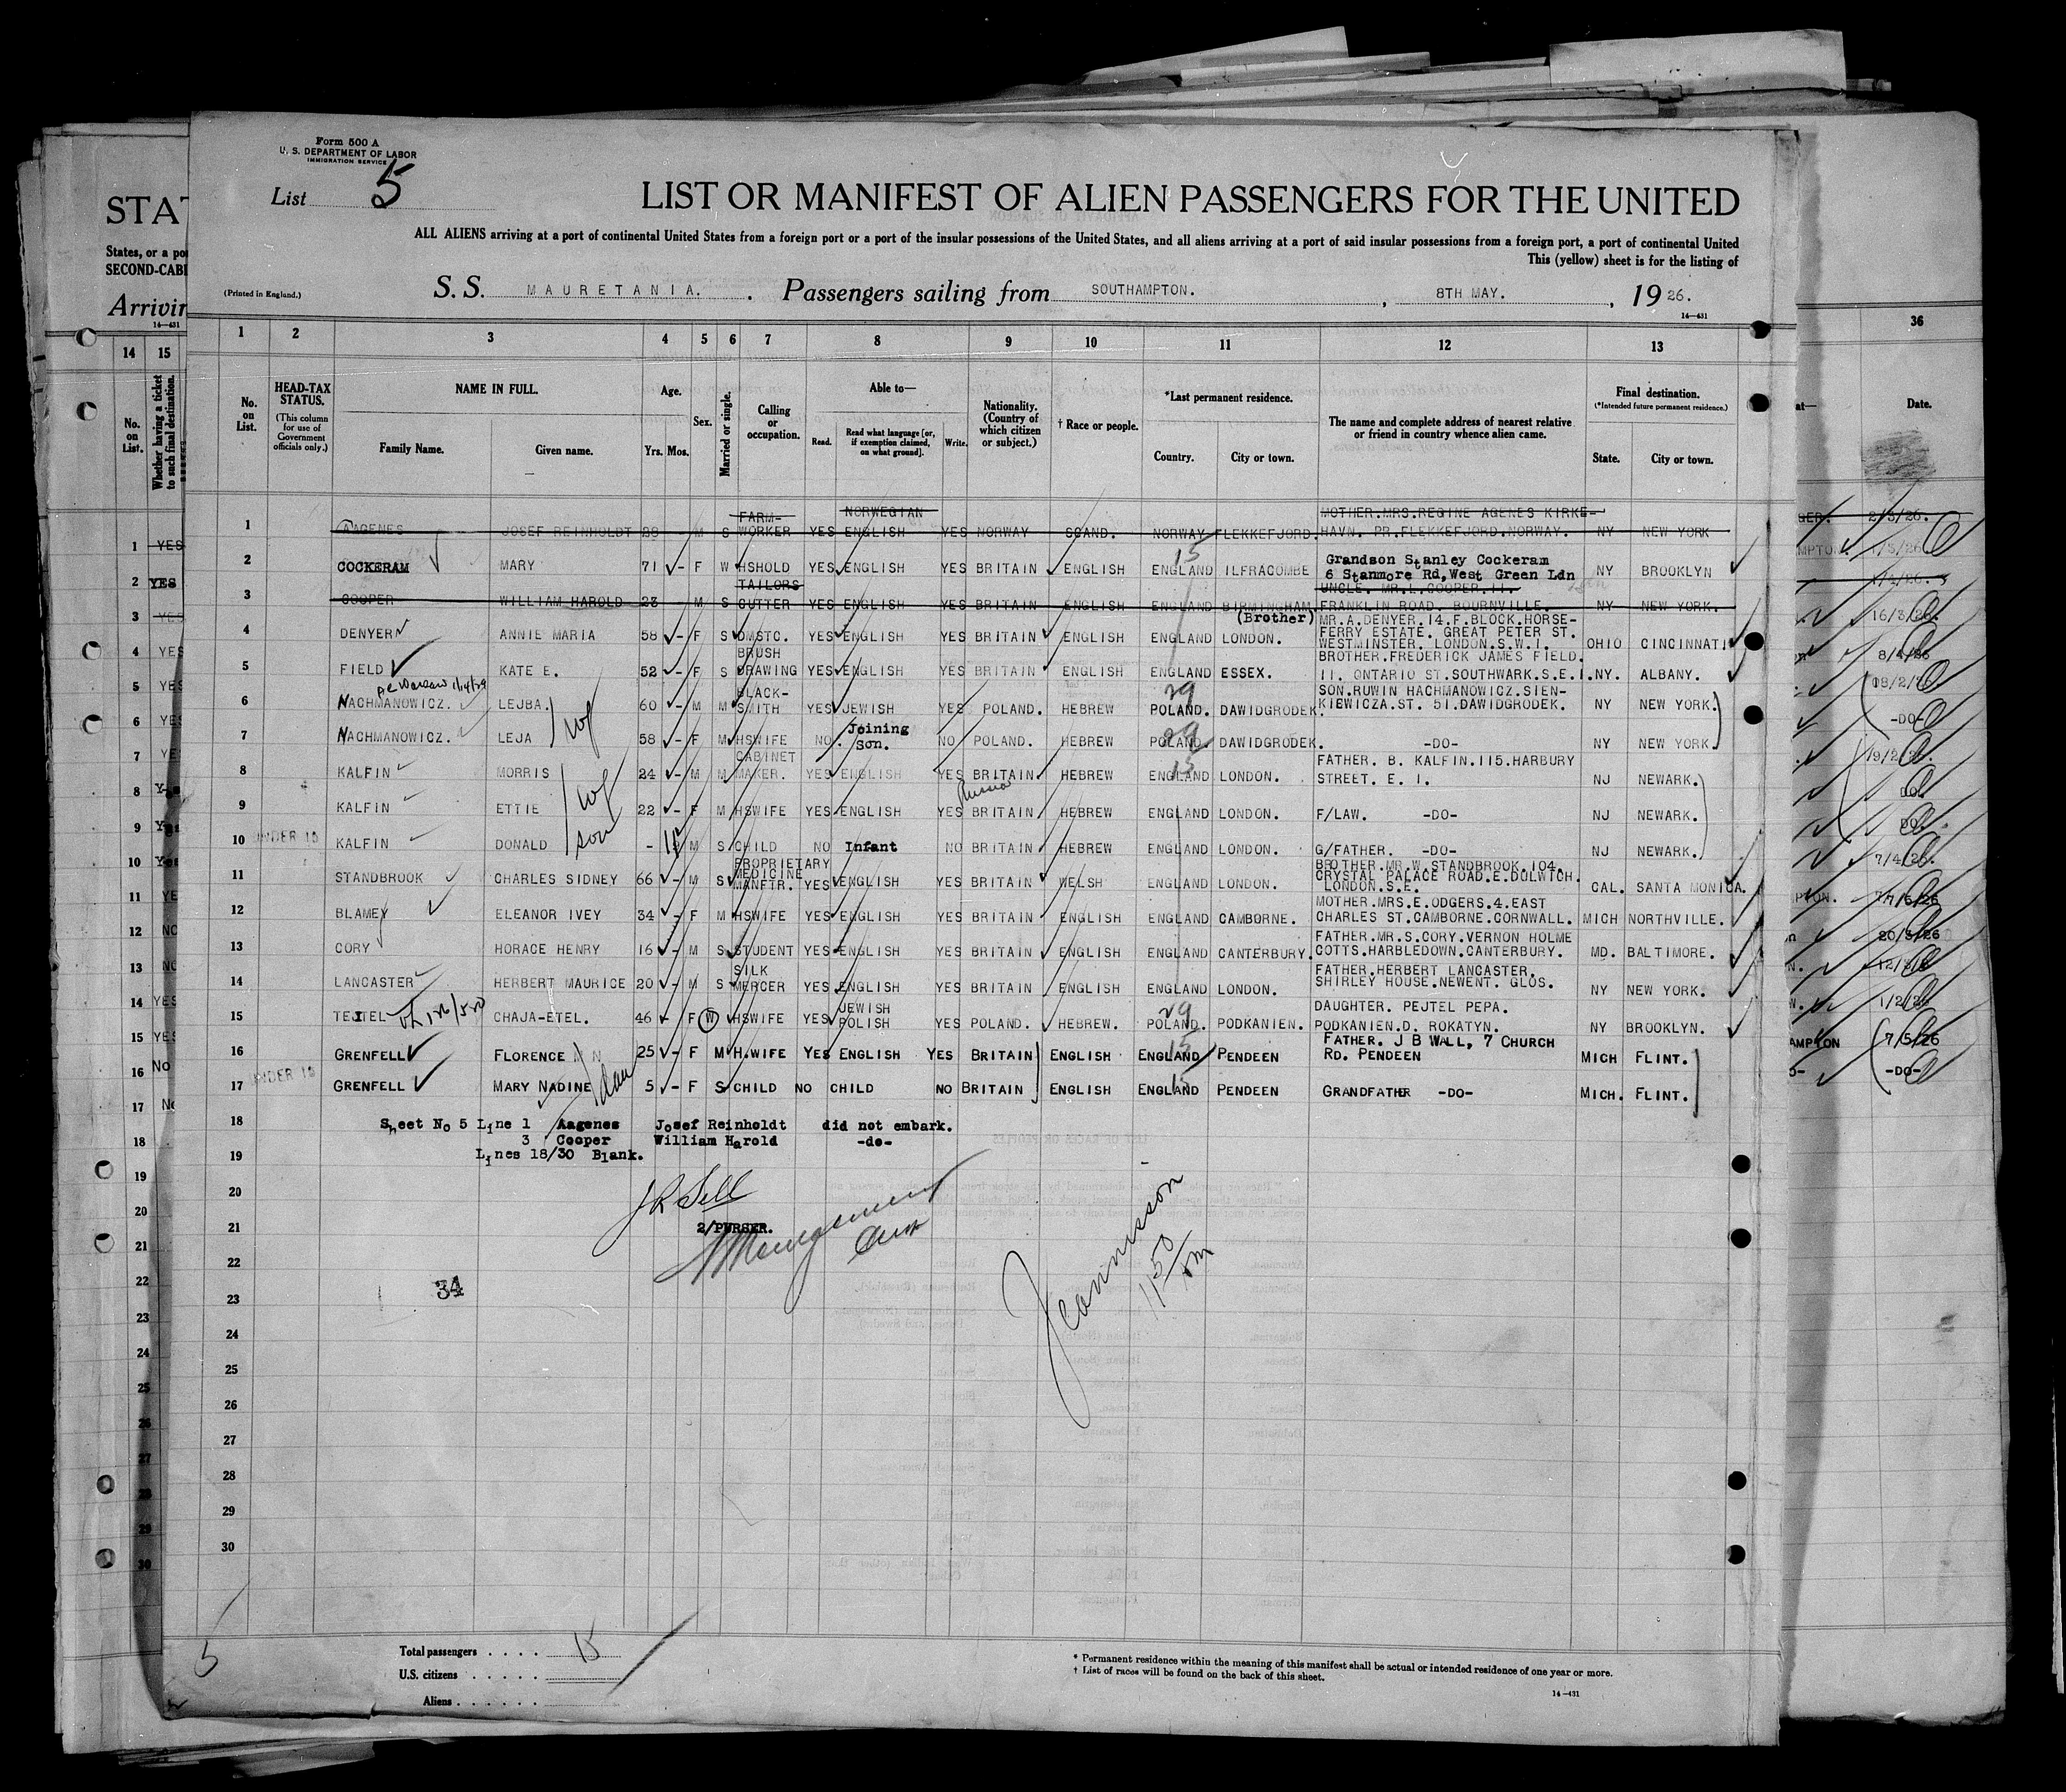 Form 500 A
U. S. DEPARTMENT OF LABOR
IMMIGRATION SERVICE
List 5
LIST OR MANIFEST OF ALIEN PASSENGERS FOR THE UNITED
ALL ALIENS arriving at a port of continental United States from a foreign port or a port of the insular possessions of the United States, and all aliens arriving at a port of said insular possessions from a foreign port, a port of continental United
This (yellow) sheet is for the listing of
(Printed in England.)
S. S. MAURETANIA. Passengers sailing from SOUTHAMPTON. , 8TH MAY. , 19 26.
14-431
STAT
States, or a po
SECOND-CABI
Arrivin
14-431
1 2 3 4 5 6 7 8 9 10 11 12 13
14 15
36
No. on List.
HEAD-TAX STATUS.
(This column for use of Government officials only.)
NAME IN FULL.
Family Name. Given name.
Age.
Yrs. Mos.
Sex.
Married or single.
Calling or occupation.
Able to—
Read. Read what language [or, if exemption claimed, on what ground]. Write.
Nationality. (Country of which citizen or subject.)
† Race or people.
*Last permanent residence.
Country. City or town.
The name and complete address of nearest relative or friend in country whence alien came.
Final destination.
(*Intended future permanent residence.)
State. City or town.
No. on List.
Whether having a ticket to such final destination.
Date.
1 AAGENES JOSEF REINHOLDT 28 M S FARM-WORKER YES NORWEGIAN ENGLISH YES NORWAY SCAND. NORWAY FLEKKEFJORD. MOTHER.MRS.REGINE AGENES KIRKE-
HAVN. PR.FLEKKEFJORD.NORWAY. NY NEW YORK
2 COCKERAM MARY 71 - F W HSHOLD YES ENGLISH YES BRITAIN ENGLISH 15 ENGLAND ILFRACOMBE Grandson Stanley Cockeram
6 Stanmore Rd,West Green Ldn NY BROOKLYN
3 COOPER WILLIAM HAROLD 23 - M S TAILORS CUTTER YES ENGLISH YES BRITAIN ENGLISH ENGLAND BIRMINGHAM. UNCLE. MR.L.COOPER.11.
FRANKLIN ROAD. BOURNVILLE. NY NEW YORK.
4 DENYER ANNIE MARIA 58 - F S DMSTC. YES ENGLISH YES BRITAIN ENGLISH ENGLAND LONDON. (Brother) MR.A.DENYER.14.F.BLOCK.HORSE-
FERRY ESTATE. GREAT PETER ST.
WESTMINSTER. LONDON.S.W.I. OHIO CINCINNATI
5 FIELD KATE E. 52 - F S BRUSH DRAWING YES ENGLISH YES BRITAIN ENGLISH ENGLAND ESSEX. BROTHER.FREDERICK JAMES FIELD.
11. ONTARIO ST.SOUTHWARK.S.E.I. NY. ALBANY.
6 NACHMANOWICZ. LEJBA. 60 - M M BLACK-SMITH YES JEWISH YES POLAND. HEBREW 29 POLAND. DAWIDGRODEK. SON.RUWIN HACHMANOWICZ.SIEN-
KIEWICZA.ST. 51.DAWIDGRODEK. NY NEW YORK.
7 NACHMANOWICZ. LEJA wf 58 - F M HSWIFE NO. Joining Son. NO POLAND. HEBREW 29 POLAND. DAWIDGRODEK. -DO- NY NEW YORK.
8 KALFIN MORRIS 24 - M M CABINET MAKER. YES ENGLISH YES BRITAIN HEBREW 15 ENGLAND LONDON. FATHER. B. KALFIN.115.HARBURY
STREET. E. I. NJ NEWARK.
9 KALFIN ETTIE wf 22 - F M HSWIFE YES ENGLISH YES Russia BRITAIN HEBREW ENGLAND LONDON. F/LAW. -DO- NJ NEWARK.
10 UNDER 15 KALFIN DONALD son - 11 M S CHILD NO Infant NO BRITAIN HEBREW ENGLAND LONDON. G/FATHER. -DO- NJ NEWARK.
11 STANDBROOK CHARLES SIDNEY 66 - M S PROPRIETARY MEDICINE MANFTR. YES ENGLISH YES BRITAIN WELSH ENGLAND LONDON. BROTHER.MR.W.STANDBROOK.104.
CRYSTAL PALACE ROAD.E.DULWICH.
LONDON.S.E. CAL. SANTA MONICA.
12 BLAMEY ELEANOR IVEY 34 - F M HSWIFE YES ENGLISH YES BRITAIN ENGLISH ENGLAND CAMBORNE. MOTHER.MRS.E.ODGERS.4.EAST
CHARLES ST.CAMBORNE.CORNWALL. MICH NORTHVILLE.
13 CORY HORACE HENRY 16 - M S STUDENT YES ENGLISH YES BRITAIN ENGLISH ENGLAND CANTERBURY. FATHER.MR.S.CORY.VERNON HOLME
COTTS.HARBLEDOWN.CANTERBURY. MD. BALTIMORE.
14 LANCASTER HERBERT MAURICE 20 - M S SILK MERCER YES ENGLISH YES BRITAIN ENGLISH ENGLAND LONDON. FATHER.HERBERT LANCASTER.
SHIRLEY HOUSE.NEWENT. GLOS. NY NEW YORK.
15 TEJTEL CHAJA-ETEL. 46 - F W HSWIFE YES JEWISH POLISH YES POLAND. HEBREW. 29 POLAND. PODKANIEN. DAUGHTER. PEJTEL PEPA.
PODKANIEN.D. ROKATYN. NY BROOKLYN.
16 GRENFELL FLORENCE M N 25 - F M H.WIFE YES ENGLISH YES BRITAIN ENGLISH 15 ENGLAND PENDEEN FATHER. J B WALL, 7 CHURCH
RD. PENDEEN MICH FLINT.
17 UNDER 15 GRENFELL MARY NADINE dau 5 - F S CHILD NO CHILD NO BRITAIN ENGLISH 15 ENGLAND PENDEEN GRANDFATHER -DO- MICH. FLINT.
18 Sheet No 5 Line 1 Aagenes Josef Reinholdt did not embark.
3 Cooper William Harold -do-
19 Lines 18/30 Blank.
20
21 2/PURSER.
22
23 34
24
25
26
27
28
29
30
Total passengers . . . . 15
U.S. citizens . . . . .
Aliens . . . . . .
* Permanent residence within the meaning of this manifest shall be actual or intended residence of one year or more.
† List of races will be found on the back of this sheet.
14-431
5